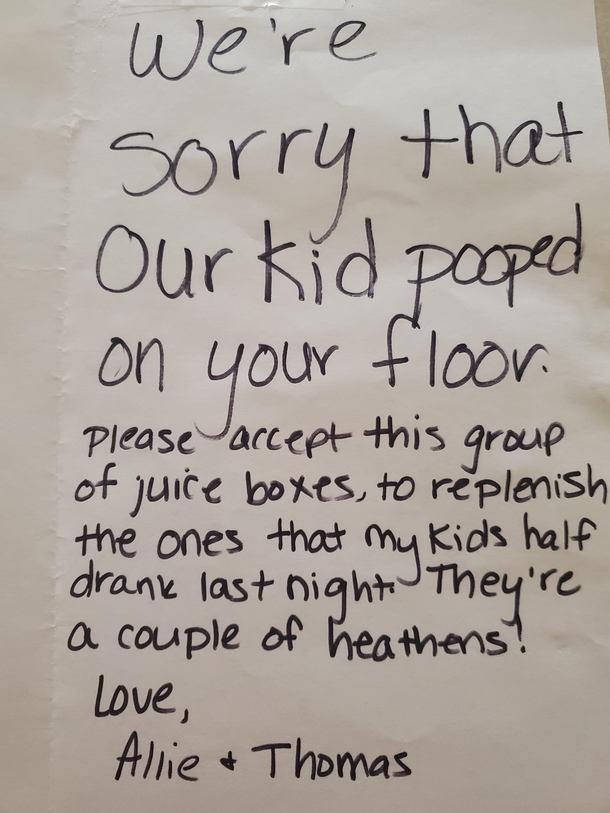 We're
Sorry that
Our kid pooped
on your floor.
Please accept this group
of juice boxes, to replenish
the ones that my kids half
drank last night. They're
a couple of heathens!
Love,
Allie + Thomas